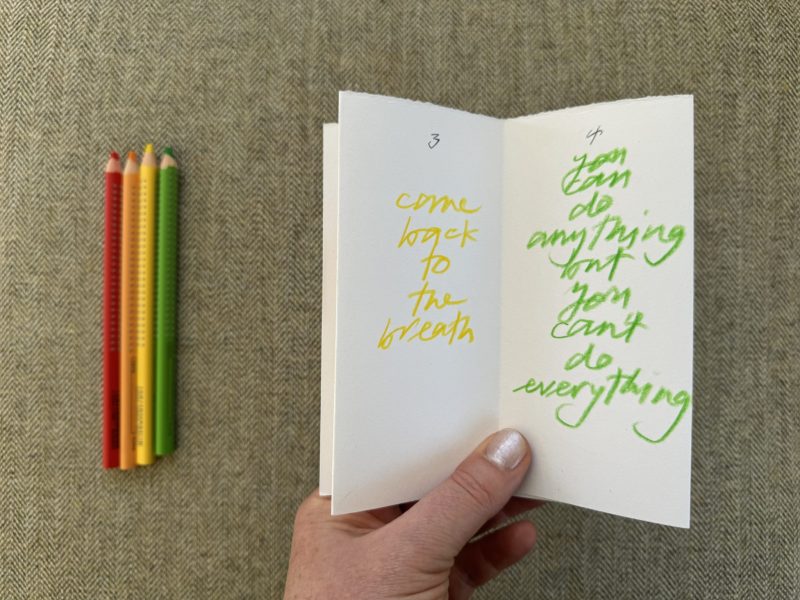 3
come
back
to
the
breath
4
you
can
do
anything
but
you
can't
do
everything